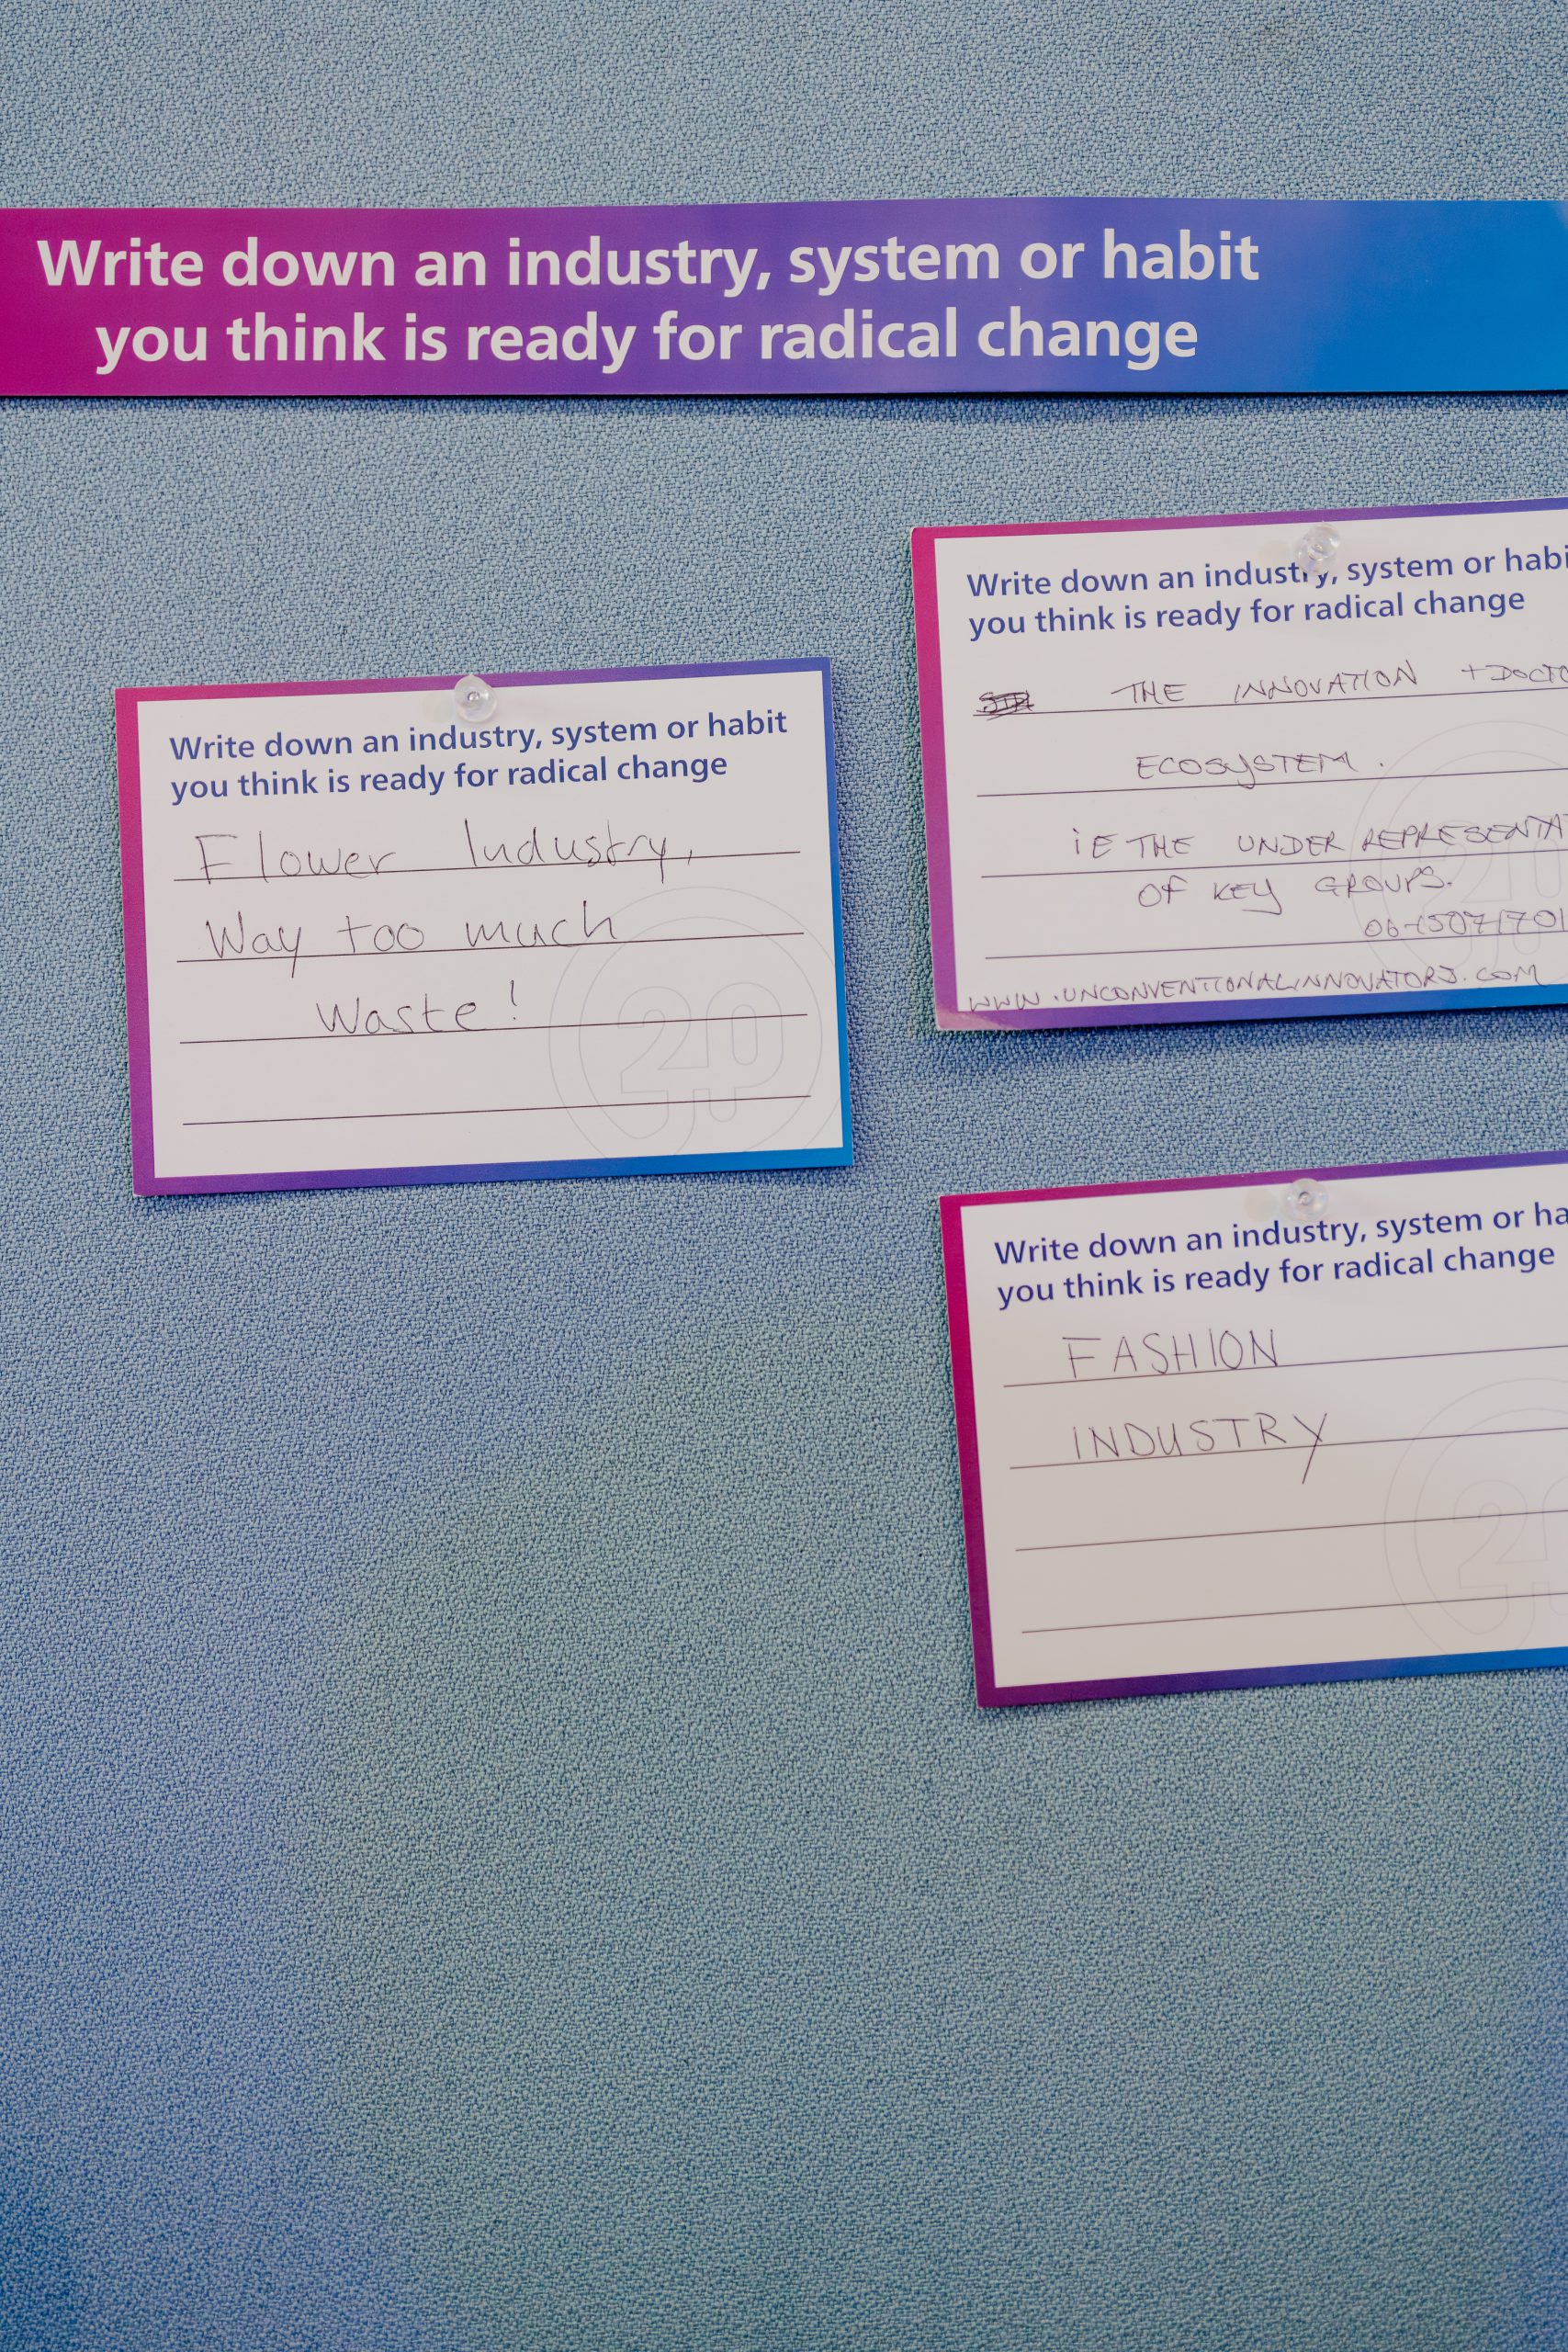 Write down an industry, system or habit
you think is ready for radical change
Write down an industry, system or habit
you think is ready for radical change
Flower Industry,
Way too much
Waste!
20
Write down an industry, system or habi
you think is ready for radical change
THE INNOVATION +DOCTO
ECOSYSTEM.
iE THE UNDER REPRESENTAT
OF KEY GROUPS.
WWW.UNCONVENTIONALINNOVATORS.COM
Write down an industry, system or ha
you think is ready for radical change
FASHION
INDUSTRY